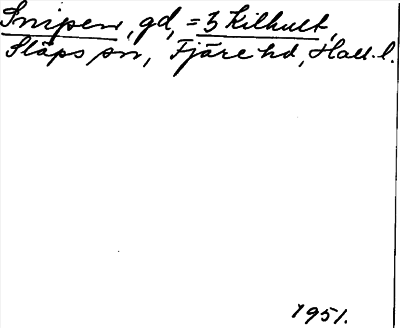 Snipen, gd, = 3 Kilhult,
Släps sn, Fjäre hd, Hall. l.
1951.